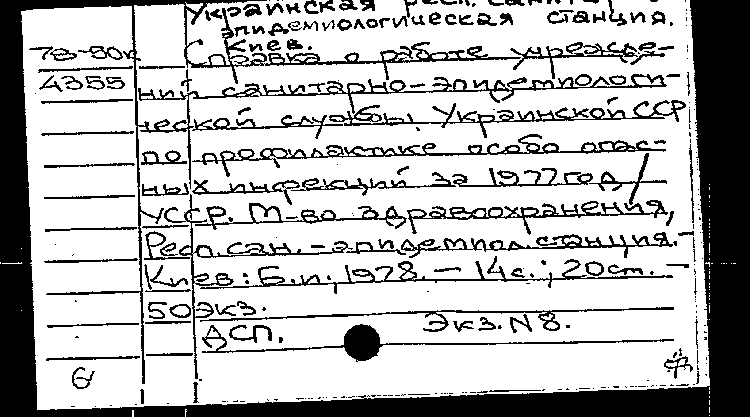 Украинская респ. санитар
эпидемиологическая станция.
Киев.
78-50к Справка о работе учрежде-
4355 ний санитарно-эпидемиологи-
ческой службы Украинской ССР
по профилактике особо опас-
ных инфекций за 1977 год /
УССР. М-во здравоохранения,
Респ. сан.-эпидемиол. станция. -
Киев: Б.и., 1978. - 14 с.; 20 см. -
50 экз.
ДСП. Экз. N 8.
6